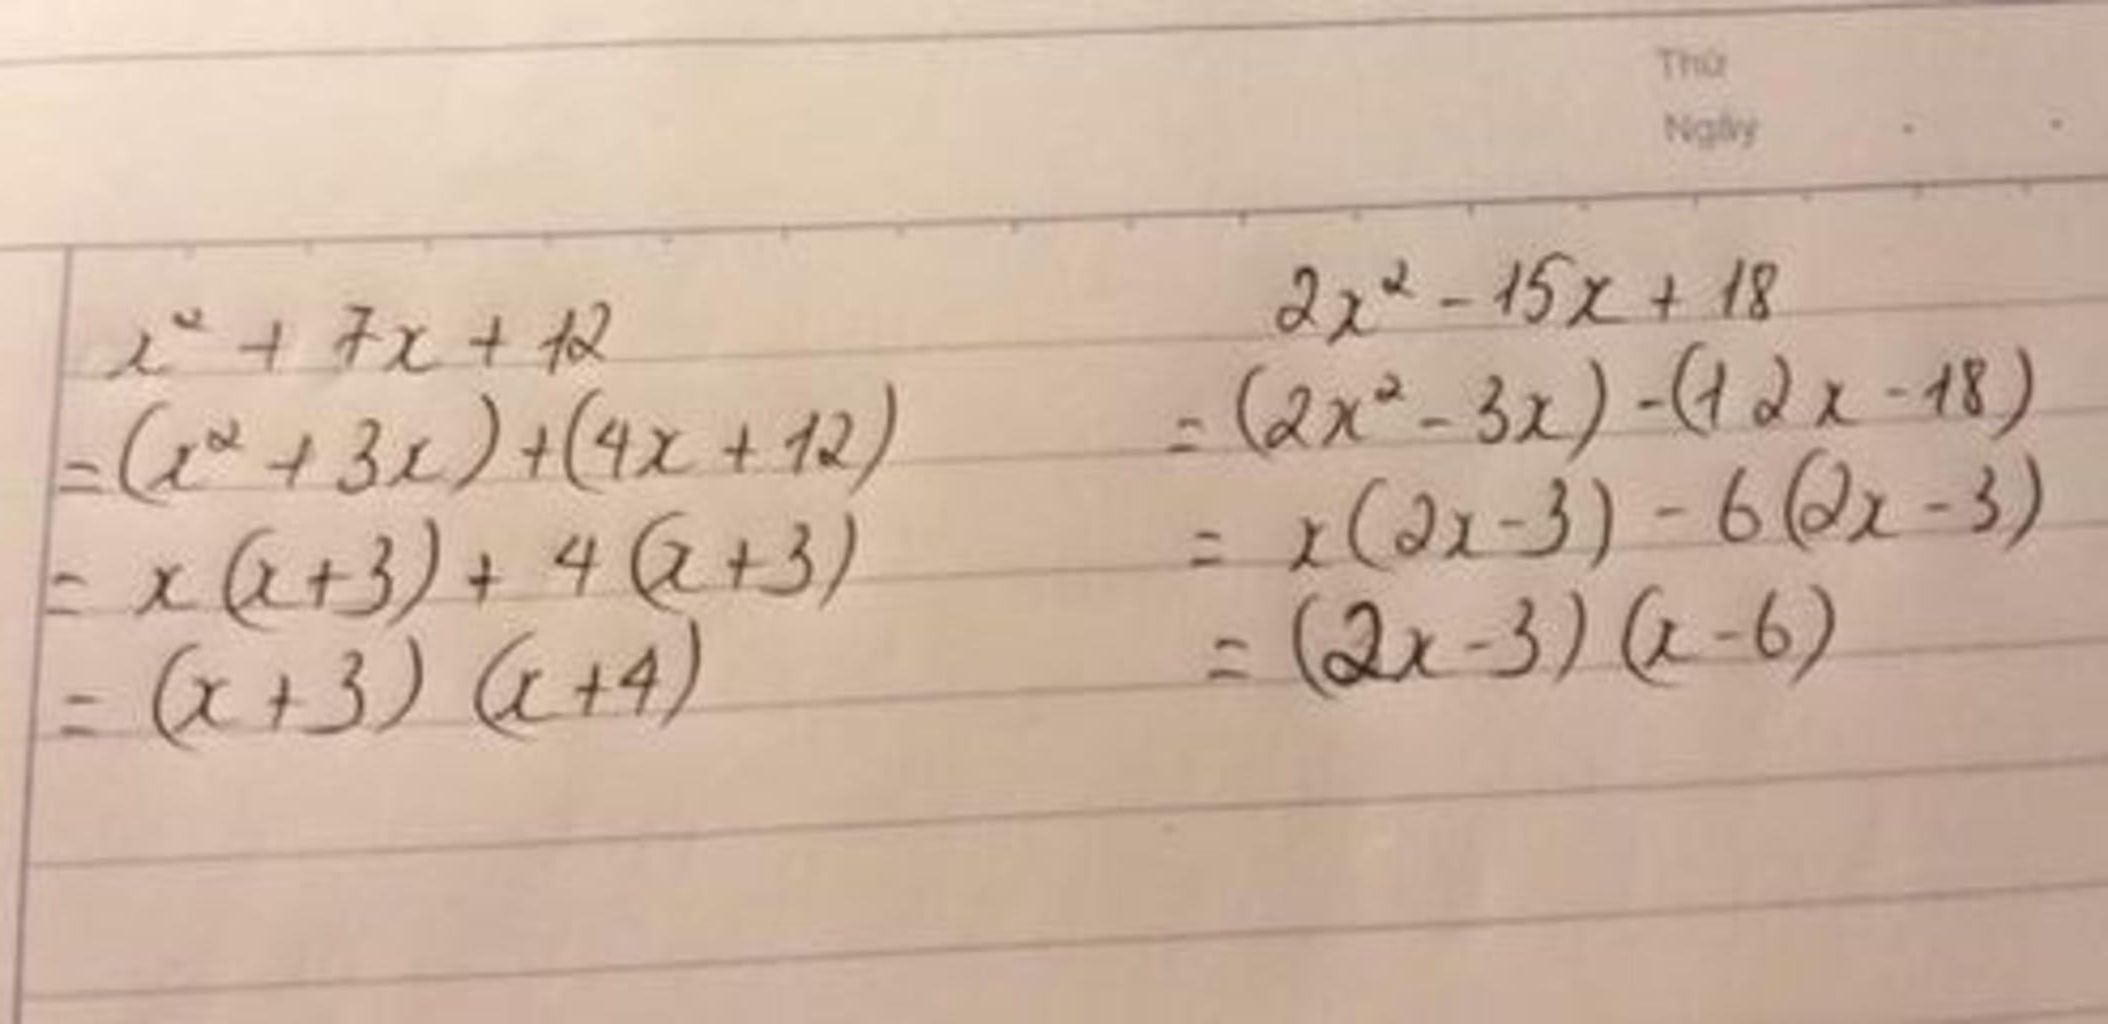 Thứ
Ngày
x² + 7x + 12
= (x² + 3x) + (4x + 12)
= x(x+3) + 4(x+3)
= (x+3) (x+4)
2x² - 15x + 18
= (2x² - 3x) - (12x - 18)
= x(2x-3) - 6(2x-3)
= (2x-3) (x-6)